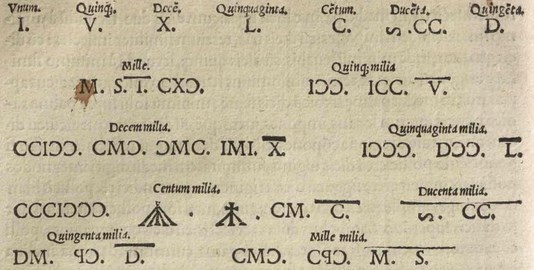 Vnum. Quinq;. Decē. Quinquaginta. Cētum. Ducēta. Quingēta.
I. V. X. L. C. ᔕ.CC. D.
Mille. Quinq; milia
M. S. I̅. CXↃ. IↃↃ. ICC. V̅.
Decem milia. Quinquaginta milia.
CCIↃↃ. CMↃ. ↃMC. IMI. X̅. IↃↃↃ. DↃↃ. L̅.
Centum milia. Ducenta milia.
CCCIↃↃↃ. . . CM. C̅. ᔕ. CC.
Quingenta milia. Mille milia.
DM. D̅. CMↃ. M. S.